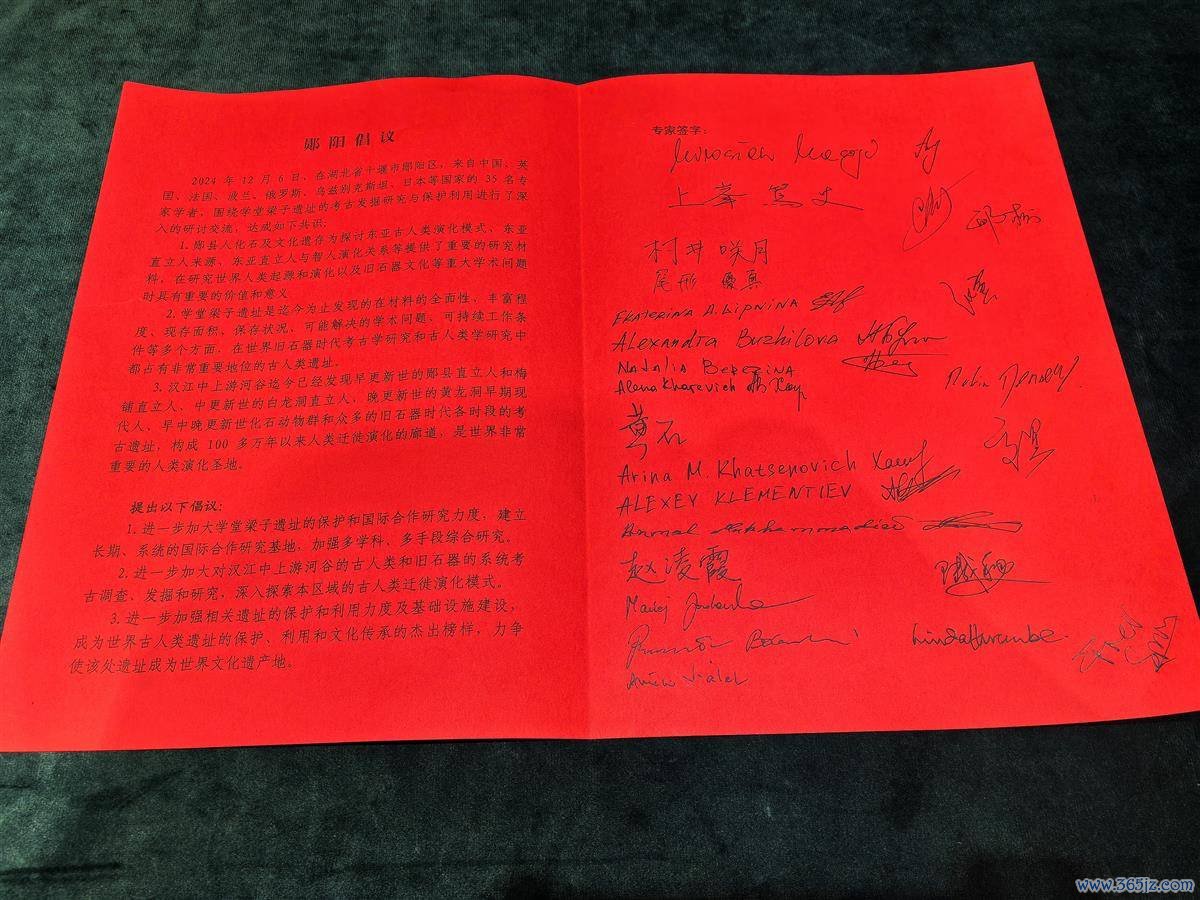 郧阳倡议
2024 年 12 月 6 日，在湖北省十堰市郧阳区，来自中国、英
国、法国、波兰、俄罗斯、乌兹别克斯坦、日本等国家的 35 名专
家学者，围绕学堂梁子遗址的考古发掘研究与保护利用进行了深
入的研讨交流，达成如下共识：
1. 郧县人化石及文化遗存为探讨东亚古人类演化模式、东亚
直立人来源、东亚直立人与智人演化关系等提供了重要的研究材
料，在研究世界人类起源和演化以及旧石器文化等重大学术问题
时具有重要的价值和意义
2. 学堂梁子遗址是迄今为止发现的在材料的全面性，丰富程
度、现存面积、保存状况、可能解决的学术问题、可持续工作条
件等多个方面，在世界旧石器时代考古学研究和古人类学研究中
都占有非常重要地位的古人类遗址。
3. 汉江中上游河谷迄今已经发现早更新世的郧县直立人和梅
铺直立人、中更新世的白龙洞直立人，晚更新世的黄龙洞早期现
代人、早中晚更新世化石动物群和众多的旧石器时代各时段的考
古遗址，构成 100 多万年以来人类迁徙演化的廊道，是世界非常
重要的人类演化圣地。
提出以下倡议：
1. 进一步加大学堂梁子遗址的保护和国际合作研究力度，建立
长期、系统的国际合作研究基地，加强多学科、多手段综合研究。
2. 进一步加大对汉江中上游河谷的古人类和旧石器的系统考
古调查、发掘和研究，深入探索本区域的古人类迁徙演化模式。
3. 进一步加强相关遗址的保护和利用力度及基础设施建设，
成为世界古人类遗址的保护、利用和文化传承的杰出榜样，力争
使该处遗址成为世界文化遗产地。
专家签字：
上峯 篤史
村井 咲月
尾形 優真
EKATERINA A. LIPNINA
Alexandra Buzhilova
NATALIA BEREZINA
Alena Kharevich
黄石
Arina M. Khatsenovich
ALEXEY KLEMENTIEV
赵凌霞
www.365jz.com